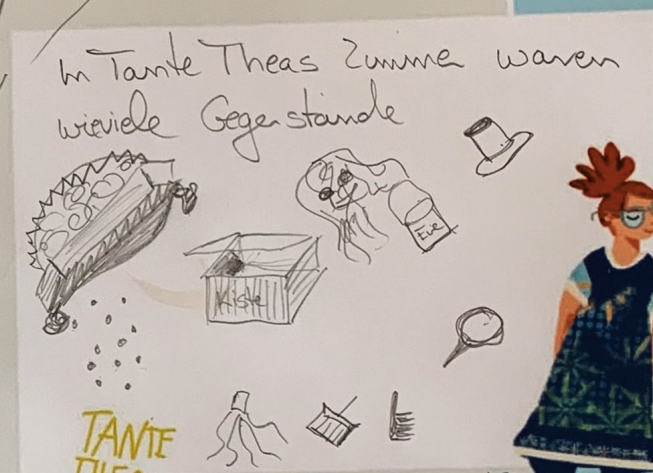 In Tante Theas Zimmer waren
wieviele Gegenstände
Eve
Kiste
TANTE
THEA